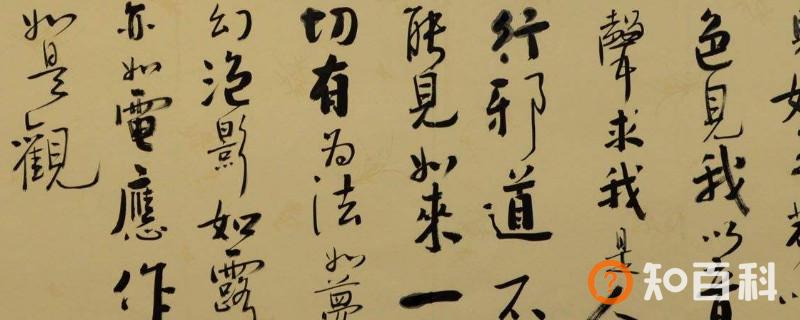 若以
色見我以音
聲求我是人
行邪道不
能見如來一
切有為法如夢
幻泡影如露
亦如電應作
如是觀
?知百科